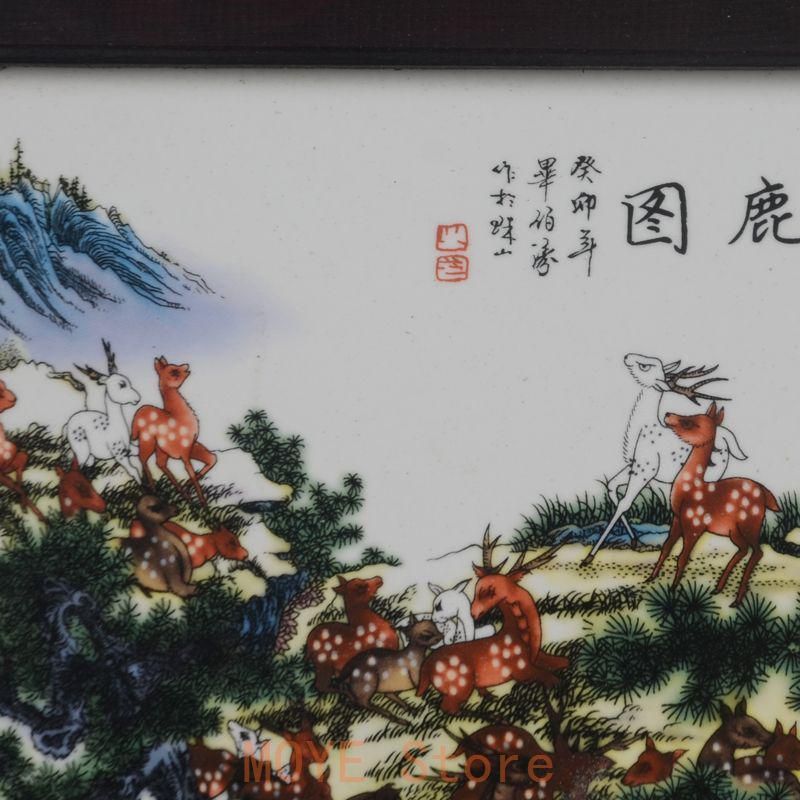 鹿图
癸卯年
畢伯濤
作於珠山
MOYE Store